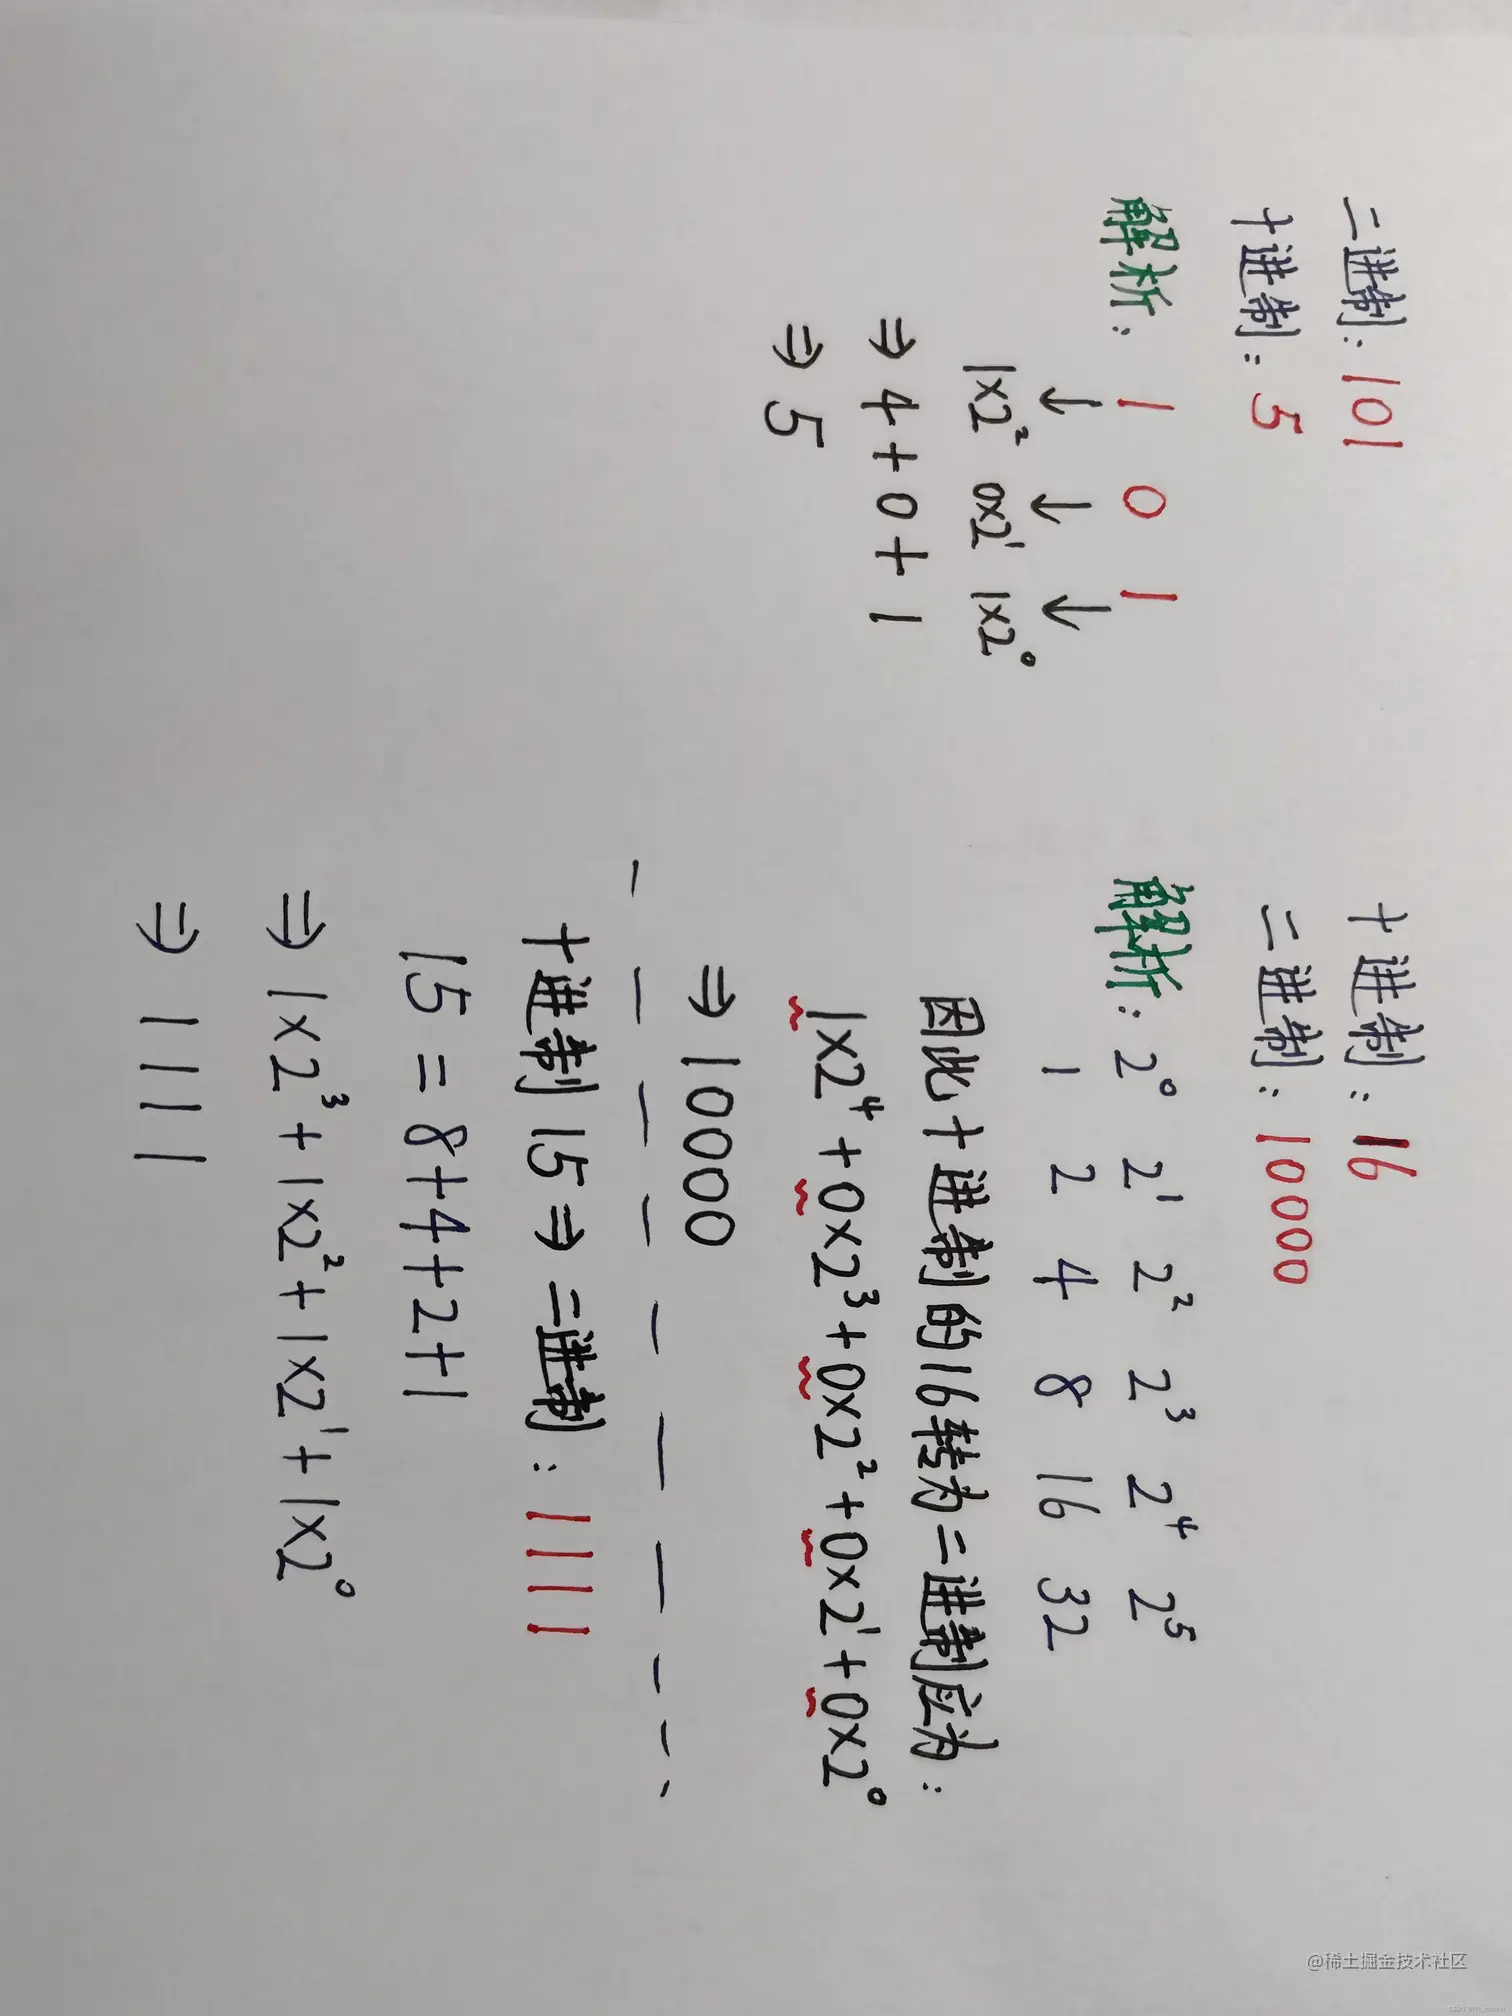 二进制：101
十进制：5
解析：1 0 1
↓ ↓ ↓
1×2² 0×2¹ 1×2⁰
⇒ 4+0+1
⇒ 5
十进制：16
二进制：10000
解析：2⁰ 2¹ 2² 2³ 2⁴ 2⁵
1 2 4 8 16 32
因此十进制的16转为二进制应为：
1×2⁴+0×2³+0×2²+0×2¹+0×2⁰
⇒ 10000
十进制15⇒二进制：1111
15=8+4+2+1
⇒ 1×2³+1×2²+1×2¹+1×2⁰
⇒ 1111
@稀土掘金技术社区